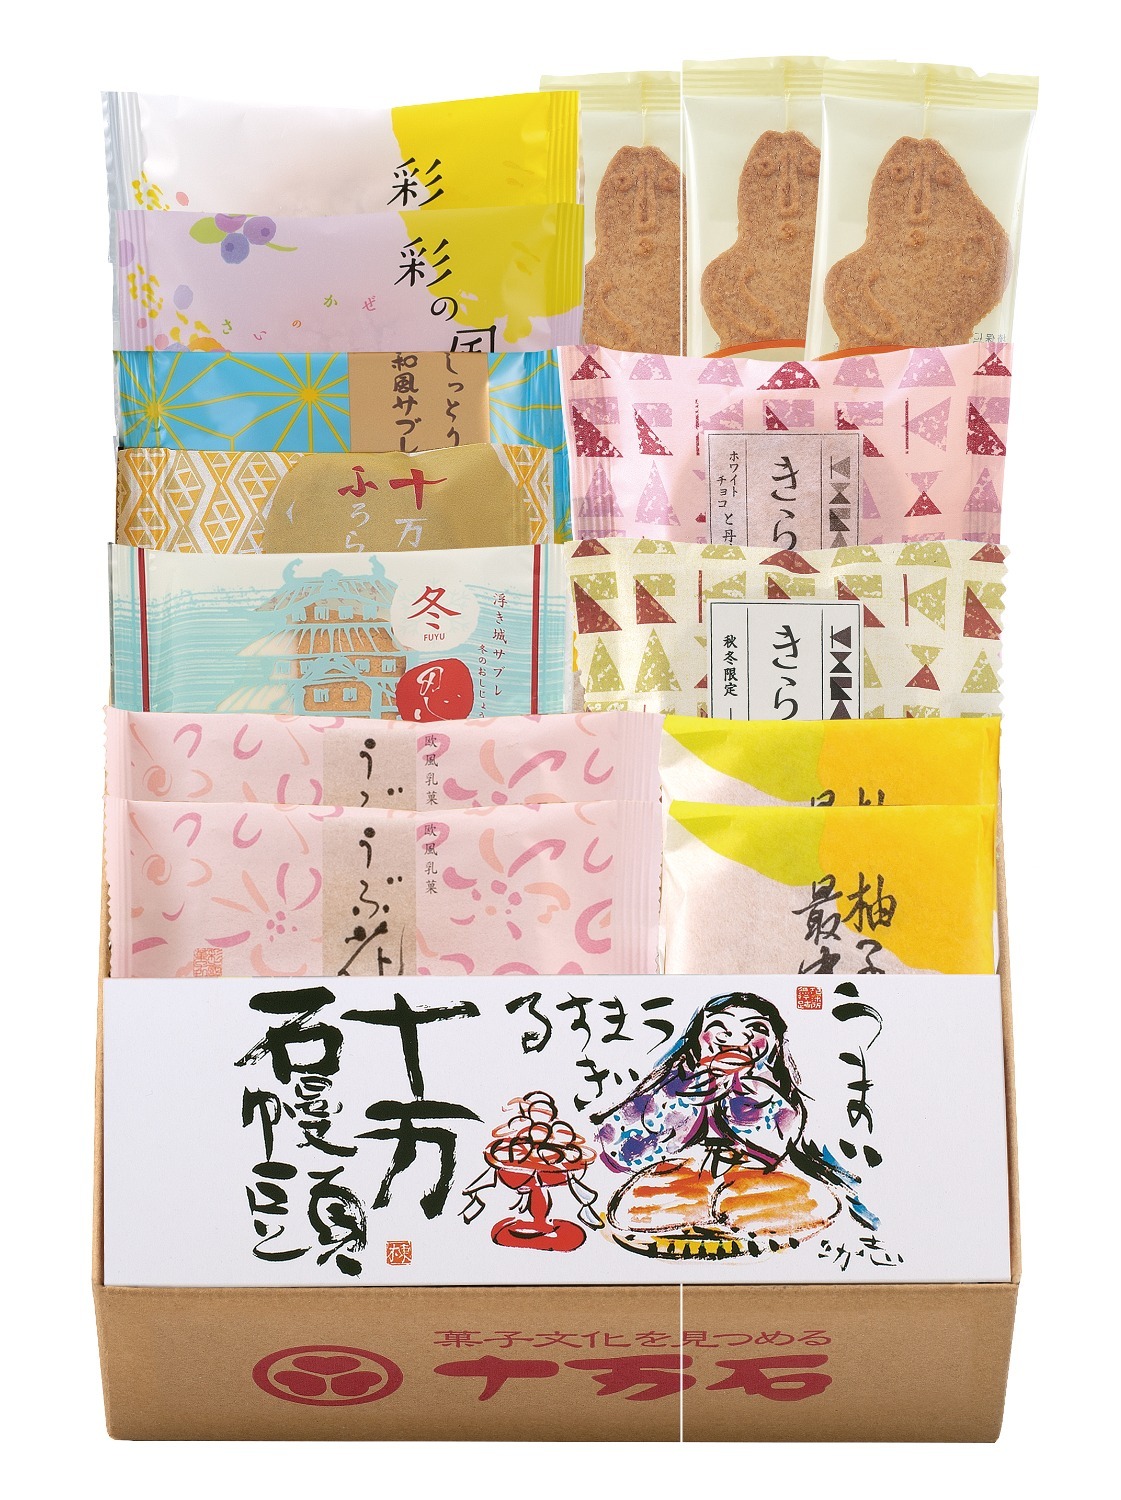 彩
彩の国
さいのかぜ
しっとり
和風サブレ
十万
ふろら
冬
FUYU
浮き城サブレ
冬のおしじょう
忍
ホワイト
チョコと丹
きら
秋冬限定
きら
欧風乳菓
うぶ
欧風乳菓
うぶ花
柚子
最中
うまい
うますぎる
十万
石饅頭
菓子文化を見つめる
十万石